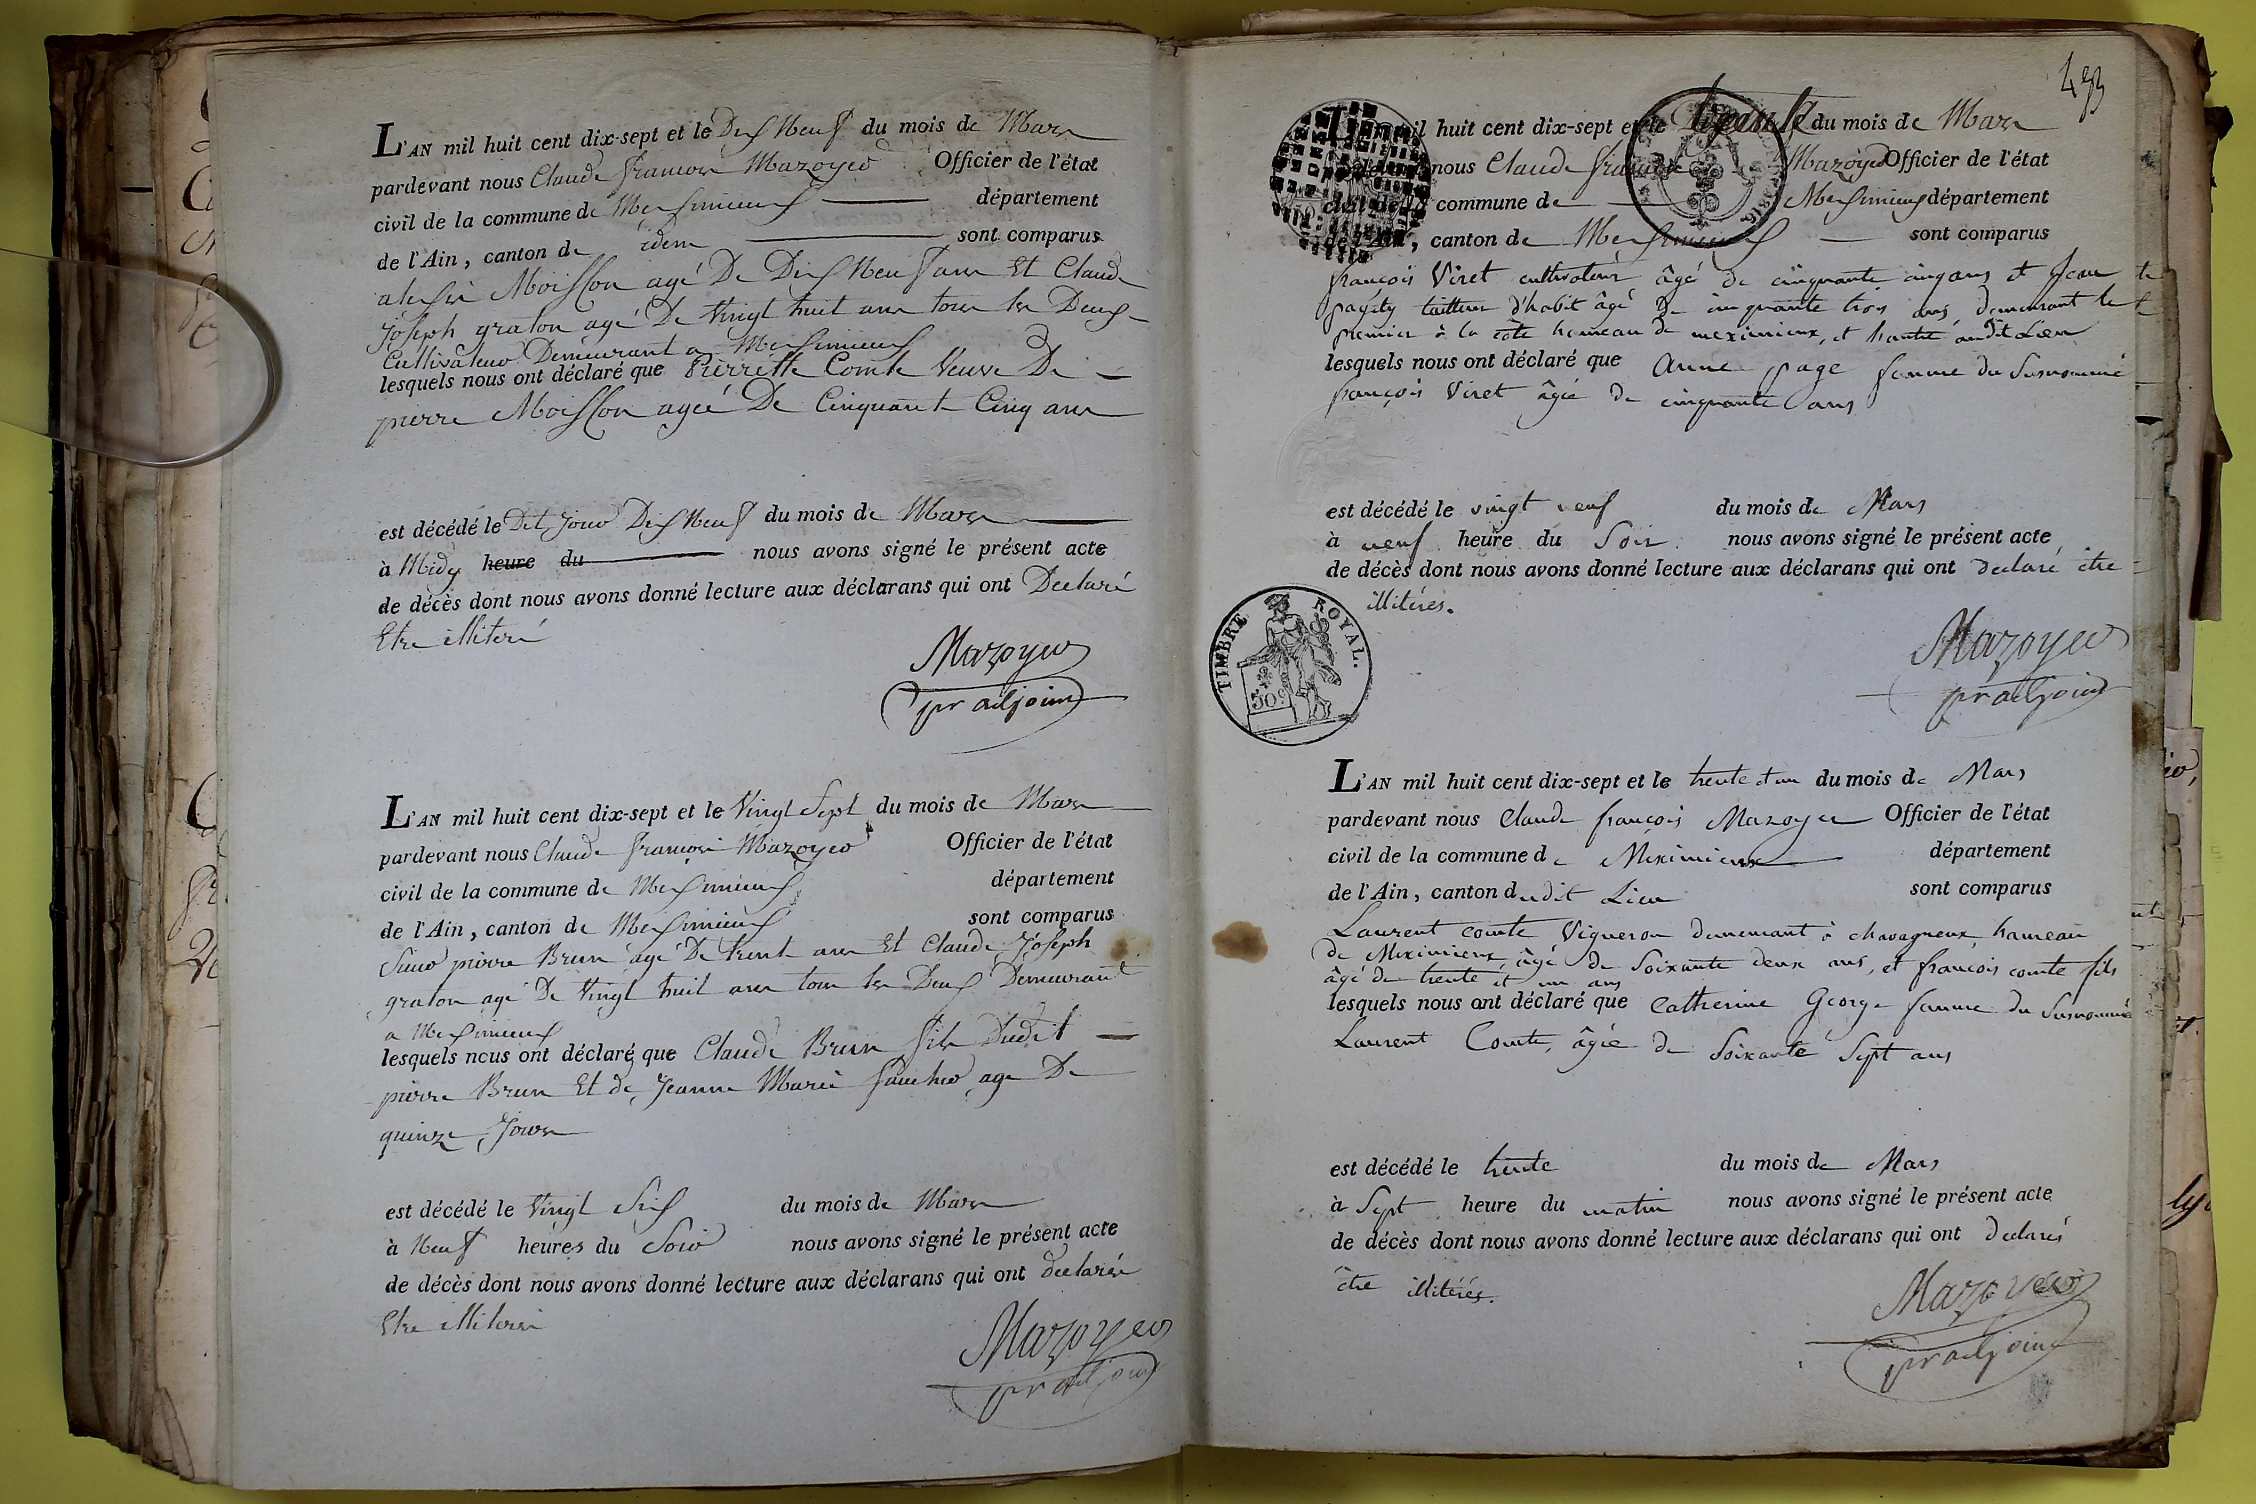 L'AN mil huit cent dix-sept et le Dix Neuf du mois de Mars
pardevant nous Claude François Mazoyer Officier de l'état
civil de la commune de Meximieux département
de l'Ain, canton de idem sont comparus
Moisson agé De Dix Neuf ans Et Claude
Joseph graton agé De Vingt huit ans tous les Deux
Cultivateur Demeurant a Meximieux
lesquels nous ont déclaré que Pierrette Comte Veuve De
pierre Moisson agée De Cinquante Cinq ans
est décédé le Dit jour Dix Neuf du mois de Mars
à Midy heure du nous avons signé le présent acte
de décès dont nous avons donné lecture aux déclarans qui ont Declaré
Etre illiteré
Mazoyer
pr adjoint
L'AN mil huit cent dix-sept et le Vingt Sept du mois de Mars
pardevant nous Claude François Mazoyer Officier de l'état
civil de la commune de Meximieux département
de l'Ain, canton de Meximieux sont comparus
Sieur pierre Brun agé De trente ans Et Claude Joseph
graton agé De Vingt huit ans tous les Deux Demeurant
a Meximieux
lesquels nous ont déclaré que Claude Brun fils Dudit
pierre Brun Et de Jeanne Marie age De
quinze Jours
est décédé le Vingt Six du mois de Mars
à Neuf heures du Soir nous avons signé le présent acte
de décès dont nous avons donné lecture aux déclarans qui ont declarés
Etre illiterés
Mazoyer
pr adjoint
493
mil huit cent dix-sept et le trente du mois de Mars
nous Claude François Mazoyer Officier de l'état
commune de Meximieux département
, canton de Meximieux sont comparus
françois Viret cultivateur âgé de cinquante cinq ans et Jean
tailleur d'habit âgé De cinquante trois ans, demeurant le
premier à la côte hameau de meximieux, et l'autre audit Lieu
lesquels nous ont déclaré que Anne page femme du Susnommé
françois Viret âgée de cinquante ans
est décédé le vingt neuf du mois de Mars
à neuf heure du Soir nous avons signé le présent acte
de décès dont nous avons donné lecture aux déclarans qui ont declaré être
illitérés.
TIMBRE ROYAL.
50c
Mazoyer
pr adjoint
L'AN mil huit cent dix-sept et le trente et un du mois de Mars
pardevant nous Claude françois Mazoyer Officier de l'état
civil de la commune de Meximieux département
de l'Ain, canton dudit Lieu sont comparus
Laurent comte Vigneron demeurant à chavagneux hameau
de Meximieux âgé de Soixante deux ans, et françois comte fils
âgé de trente et un ans
lesquels nous ont déclaré que Catherine George femme du Susnommé
Laurent Comte, âgée de Soixante Sept ans
est décédé le trente du mois de Mars
à Sept heure du matin nous avons signé le présent acte
de décès dont nous avons donné lecture aux déclarans qui ont declarés
être illitérés.
Mazoyer
pr adjoint